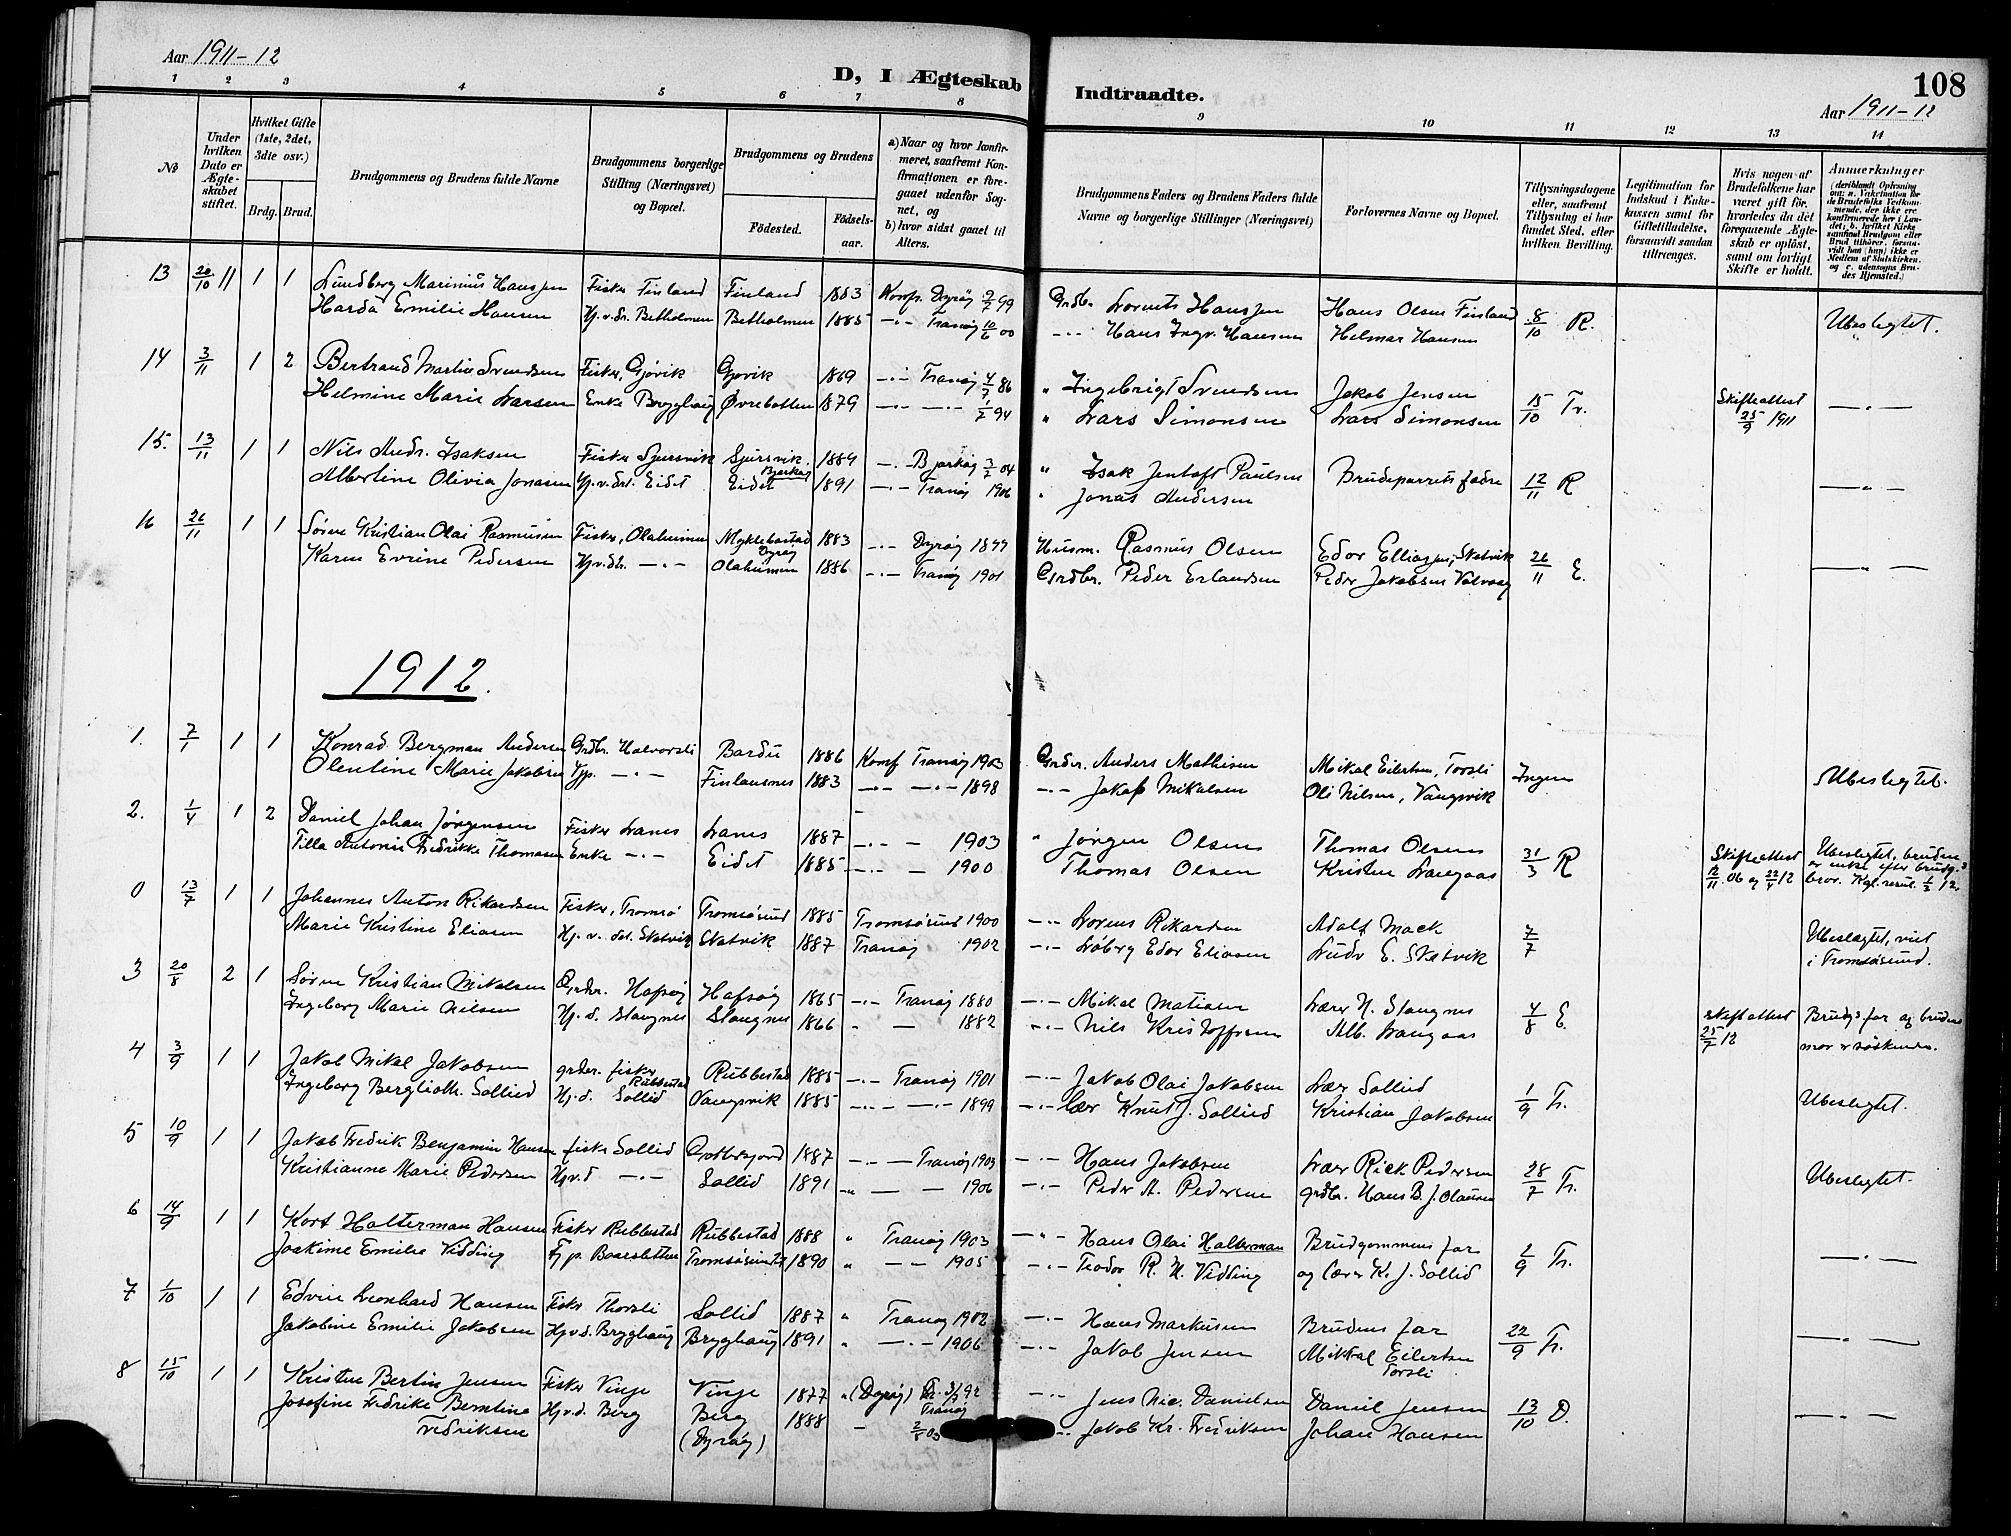 Aar 1911-12
D, I Ægteskab Indtraadte.
108
Aar 1911-12
1 2 3 4 5 6 7 8 9 10 11 12 13 14
No
Under hvilken Dato er Ægteskabet stiftet.
Hvilket Gifte (1ste, 2det, 3die osv.)
Brdg. Brud.
Brudgommens og Brudens fulde Navne
Brudgommens borgerlige Stilling (Næringsvei) og Bopæl.
Brudgommens og Brudens
Födested. Födsels-aar.
a) Naar og hvor konfirmeret, saafremt Konfirmationen er foregaaet udenfor Sognet, og
b) hvor sidst gaaet til Alters.
Brudgommens Faders og Brudens Faders fulde Navne og borgerlige Stillinger (Næringsvei)
Forlovernes Navne og Bopæl.
Tillysningsdagene eller, saafremt Tillysning ei har fundet Sted, efter hvilken Bevilling.
Legitimation for Indskud i Enkekassen samt for Giftetilladelse, forsaavidt saadan tiltrænges.
Hvis nogen af Brudefolkene har været gift för, hvorledes da det foregaaende Ægteskab er oplöst, samt om lovligt Skifte er holdt.
Anmerkninger
13 20/10 11 1 1 Lundberg Marinius Hanssen Fisker Finland Finland 1883 Konf. Dyröy 2/7 99 Grdbr. Lornts Hanssen Hans Olsen Finland 8/10 R. Ubeslegtet.
Harda Emilie Hansen Hj.v.dr. Betholmen Betholmen 1885 -"- Tranöy 10/6 00 -"- Hans Ingv. Hansen Helmar Hansen
14 3/11 1 2 Bertrand Martin Svendsen Fisker, Gjövik Gjövik 1869 -"- Tranöy 4/7 86 " Ingebrigt Svendsen Jakob Jensen 15/10 Tr. Skifteattest 25/9 1911 -"-
Helmine Marie Larsen Enke Brygghaug Øvrebotten 1879 -"- -"- 1/7 94 " Lars Simonsen Lars Simonsen
15. 13/11 1 1 Nils Andr. Isaksen Fisker Sjursvik Sjursvik, Bjarköy 1884 -"- Bjarköy 3/7 04 " Isak Jentoft Paulsen Brudeparrets fædre 12/11 R -"-
Albertine Olivia Jonasen Hj.v.drt. Eidet Eidet 1891 -"- Tranöy 1906 " Jonas Andersen
16 26/11 1 1 Sören Kristian Olai Rasmusen Fisker, Olaheimen Myklebostad Dyröy 1883 -"- Dyröy 1899 Husm. Rasmus Olsen Edor Elliasen, Skatvik 26/11 E. -"-
Karen Evrine Pedersen Hj.v.dr. -"- Olaheimen 1886 -"- Tranöy 1901 Grdbr. Peder Erlandsen Peder Jakobsen Valvaag
1912.
1. 7/1 1 1 Konrad Bergman Andersen Grdbr. Halvorsli Bardu 1886 Konf Tranöy 1903 Grdbr. Anders Mathisen Mikal Eilertsen, Torsli Ingen Ubeslegtet.
Olentine Marie Jakobsen Tjp. -"- Finlandsnes 1883 -"- -"- 1898 -"- Jakob Mikalsen Ole Nilsen, Vangsvik
2. 1/4 1 2 Daniel Johan Jörgensen Fisker Lanes Lanes 1887 -"- - 1903 " Jörgen Olsen Thomas Olsen 31/3 R Skifteattest 12/11 06 og 22/4 12 Ubeslegtet, bruden er enke efter brudg.s bror. Kgl. resol. 1/3 12.
Tilla Antonie Fredrikke Thomasen Enke -"- Eidet 1885 -"- - 1900 Thomas Olsen Kristen Langaas
0 13/7 1 1 Johannes Anton Rikardsen Fisker, Tromsö Tromsösund 1885 Tromsösund 1900 -"- Lorens Rikardsen Adolf Mack 7/7 Ubeslægtet, viet i Tromsösund.
Marie Kristine Eliasen Hj. v. det. Skatvik Skatvik 1887 Tranöy 1902 -"- Löberg Edor Eliasen Ludv E. Skatvik
3 20/8 2 1 Sören Kristian Mikalsen Grdbr. Hafsöy Hafsöy 1865 -"- Tranöy 1880 -"- Mikal Matisen Lærer N. Stangnes 4/8 E. Skifteattest 25/7 12 Brudgs far og brudens mor er söskende.
Ingeborg Marie Nilsen Hj. d. Stangnes Stangnes 1866 " - 1882 -"- Nils Kristoffersen Alb. Langaas
4 3/9 1 1 Jakob Mikal Jakobsen grdbr. fisker Rubbestad Rubbestad 1885 -"- Tranöy 1901 -"- Jakob Olai Jakobsen Lær Sollied 1/9 Tr. Ubeslegtet.
Ingeborg Berglioth. Sollied Hj. d. Sollid Vangsvik 1885 -"- -"- 1899 -"- lær Knut J. Sollied Kristian Jakobsen
5 10/9 1 1 Jakob Fredrik Benjamin Hansen fisker Sollid Grottesfjord 1887 -"- - Tranöy 1903 -"- Hans Jakobsen Lær Rick Pedersen 28/7 Tr. Ubeslegtet.
Kristianne Marie Pedersen Hj.v.d -"- Sollid 1891 -"- - 1906 -"- Peder A. Pedersen grdbr. Hans B. J. Olausen
6 14/9 1 1 Kort Halterman Hansen Fisker Rubbestad Rubbestad 1888 " Tranöy 1903 -"- Hans Olai Halterman Brudgommens far 1/9 Tr. -"-
Joakime Emilie Vidding Tjp. Baarsletten Tromsösundet 1890 " - - 1905 -"- Teodor R. N. Vidding og Lærer K. J. Sollid
7 1/10 1 1 Edvin Leonhard Hansen Fisker Thorsli Sollid 1887 " Tranöy 1902 -"- Hans Markusen Brudens far 22/9 Tr. -"-
Jakobine Emilie Jakobsen Hj.v.d. Brygghaug Brygghaug 1891 " -"- 1906 -"- Jakob Jensen Mikkal Eilertsen Torsli
8 15/10 1 1 Kristen Bertin Jensen Fisker Vinje Vinje 1877 " (Dyröy) 92 -"- Jens Nic. Danielsen Daniel Jensen 13/10 D. -"-
Josefine Fredrike Berntine Fredriksen Hj.v.d. Berg Berg (Dyröy) 1888 - Tranöy 2/8 03 -"- Jakob Kr. Fredriksen Johan Hansen